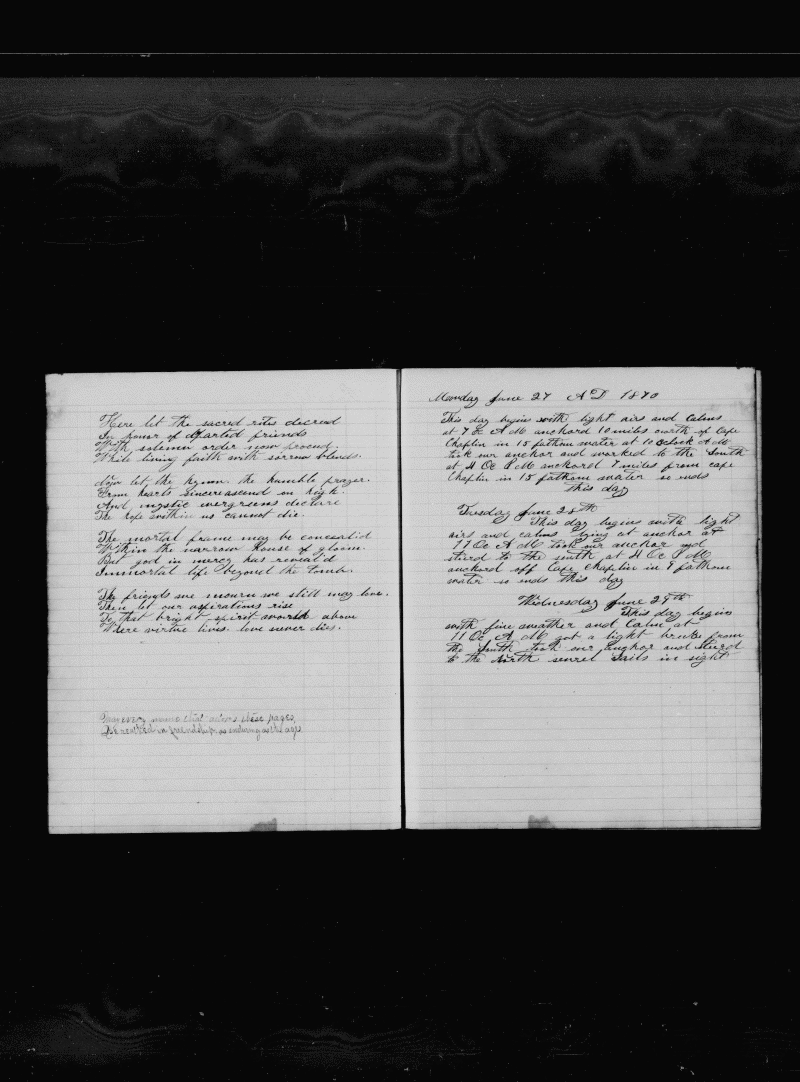 Here let the sacred rites decreed
In honor of departed friends
With solemn order now proceed.
While living faith with sorrow blends.
Now let the hymn. the humble prayer.
From hearts sincere ascend on high.
And mystic evergreens declare
The hope within us cannot die.
The mortal frame may be conceald
Within the narrow house of gloom.
But god in mercy has reveal'd
Immortal life beyond the tomb.
The friends we mourn we still may love.
Then let our aspirations rise
To that bright spirit world above
Where virtue lives. love never dies.
May every name that adorns these pages,
Be wreathed in friendship, as enduring as the ages
Monday June 27 AD 1870
This day begins with light airs and Calms
at 7 Oc A M anchord 10 miles north of Cape
Chaplin in 15 fathom water at 10 Oclock A M
tick our anchor and worked to the South
at 4 Oc P M anckord 7 miles from cape
Chaplin in 15 fathom water so ends
this day
Tuesday June 28th
This day begins with light
airs and calms lying at anchor at
11 Oc A M took our anchor and
sterd to the south at 4 Oc P M
anckord off Cape Chaplin in 8 fathom
water so ends this day
Wednesday June 29th
This day begins
with fine weather and Calm at
11 Oc A M got a light breeze from
the South took our anchor and sterd
to the North sevrel Sails in sight